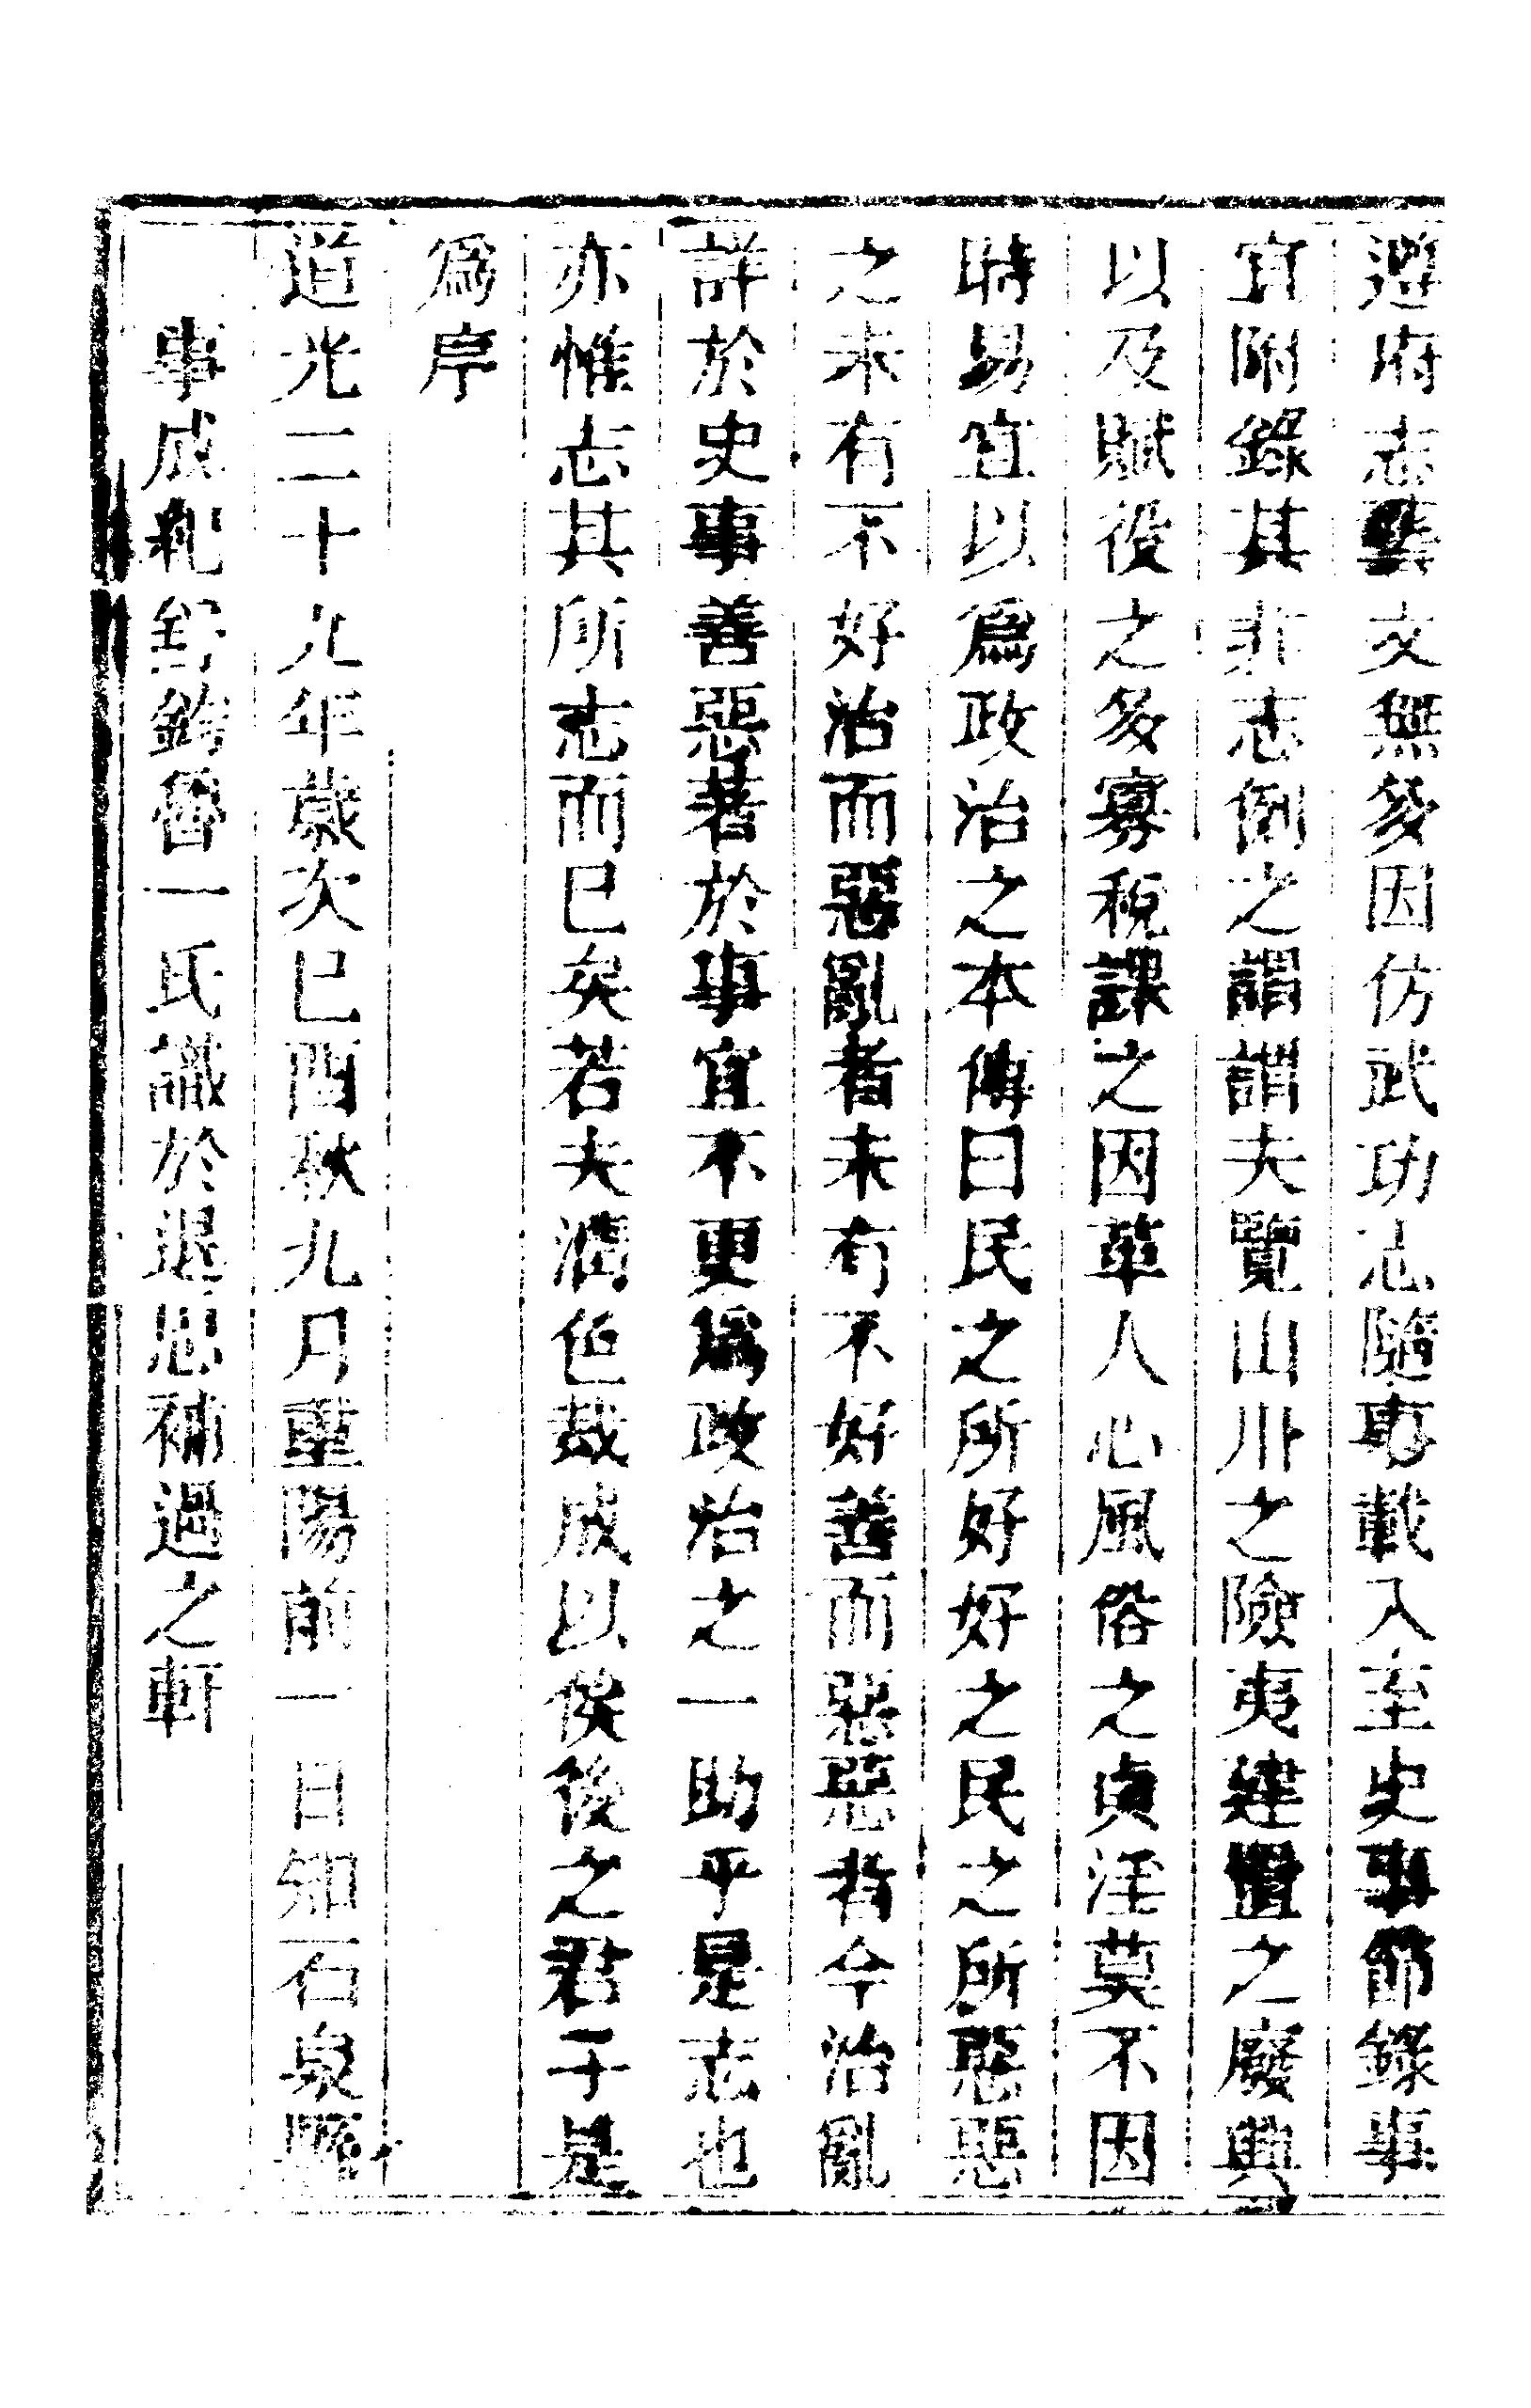 遵府志藝文無多因仿武功志隨事載入至史事節錄事
宜附錄其非志例之謂謂夫覽山川之險夷建置之廢興
以及賦役之多寡稅課之因革人心風俗之貞淫莫不因
時易宜以爲政治之本傳曰民之所好好之民之所惡惡
之未有不好治而惡亂者未有不好善而惡惡者今治亂
詳於史事善惡著於事宜不更爲政治之一助乎是志也
亦惟志其所志而已矣若夫潤色裁成以俟後之君子是
爲序
道光二十九年歲次巳酉秋九月重陽前一日知石泉縣
事成紀舒鈞魯一氏識於退思補過之軒